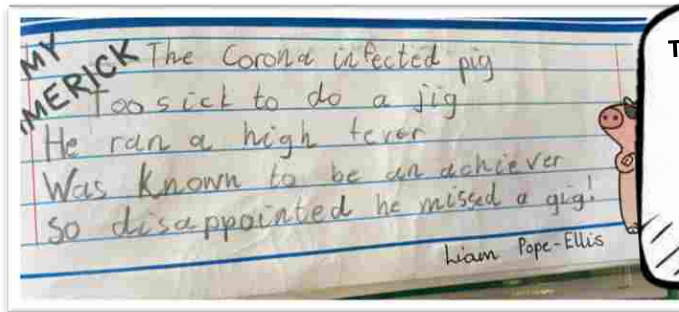 MY
LIMERICK
The Corona infected pig
Too sick to do a jig
He ran a high fever
Was known to be an achiever
So disappointed he missed a gig!
Liam Pope-Ellis
T